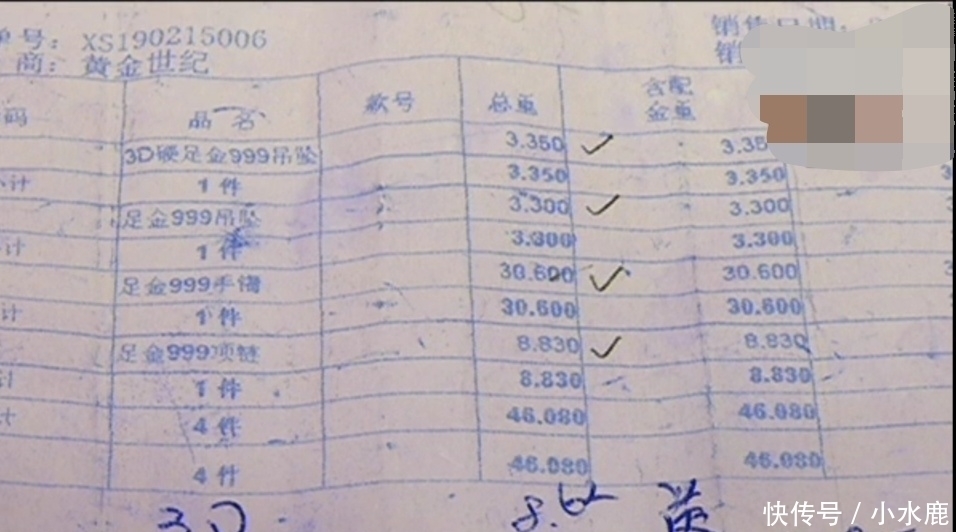 单号: XS190215006 销售日期:
商: 黄金世纪 销
码 品名 款号 总重 含配金重
3D硬足金999吊坠 3.350 3.35
小计 1件 3.350 3.350
足金999吊坠 3.300 3.300
小计 1件 3.300 3.300
足金999手镯 30.600 30.600
计 1件 30.600 30.600
足金999项链 8.830 8.830
计 1件 8.830 8.830
计 4件 46.080 46.080
4件 46.080 46.080
3D
快传号 / 小水鹿